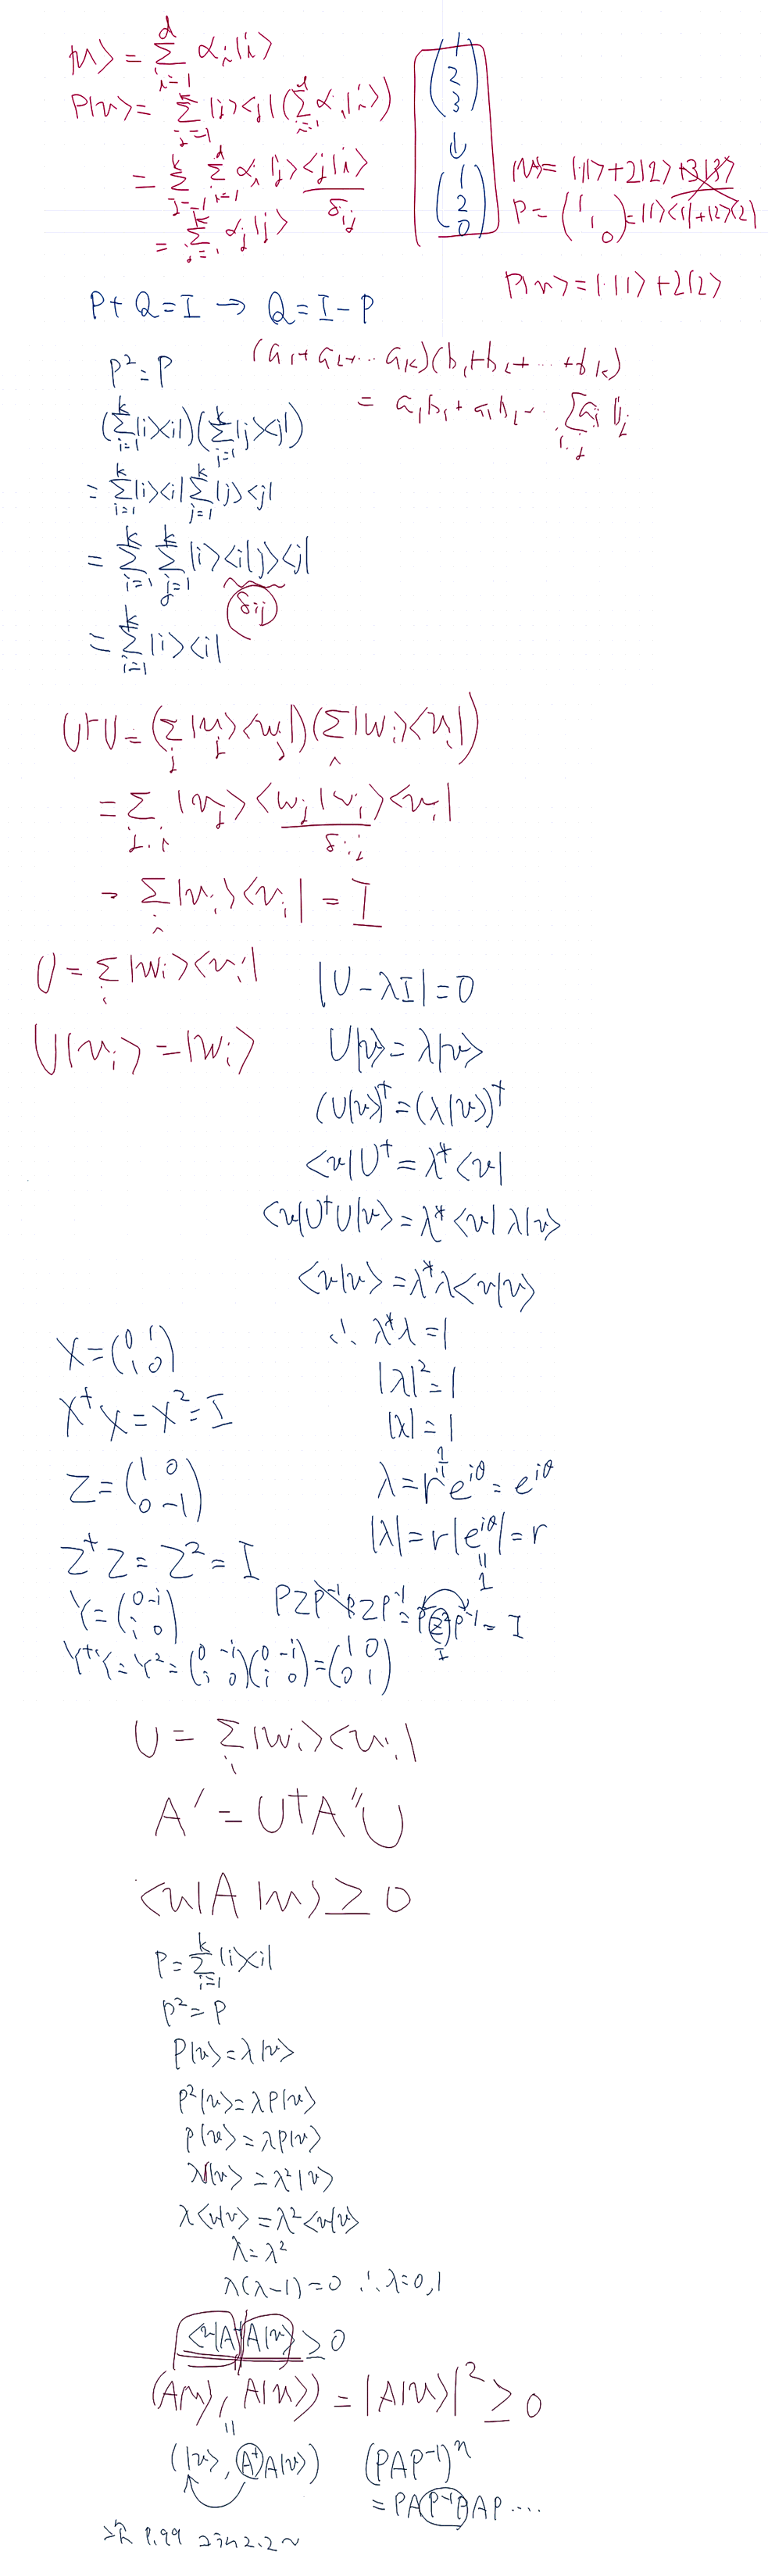 |v> = Σ_{i=1}^{d} α_i|i>
P|v> = Σ_{j=1}^{k} |j><j| (Σ_{i=1}^{d} α_i|i>)
= Σ_{j=1}^{k} Σ_{i=1}^{d} α_i |j> <j|i>
δ_{ij}
= Σ_{j=1}^{k} α_j|j>
(1 2 3)
↓
(1 2 0)
|v> = 1·|1> + 2|2> + 3|3>
P = (1 1 0) = |1><1| + |2><2|
P|v> = 1·|1> + 2|2>
P + Q = I → Q = I - P
P² = P
(a₁ + a₂ + ··· a_k)(b₁ + b₂ + ··· + b_k)
= a₁b₁ + a₁b₂ ··· Σ_{i,j} a_i b_j
(Σ_{i=1}^{k} |i><i|)(Σ_{j=1}^{k} |j><j|)
= Σ_{i=1}^{k} |i><i| Σ_{j=1}^{k} |j><j|
= Σ_{i=1}^{k} Σ_{j=1}^{k} |i><i|j><j|
δ_{ij}
= Σ_{i=1}^{k} |i><i|
U†U = (Σ_j |v_j><w_j|)(Σ_i |w_i><v_i|)
= Σ_{j,i} |v_j> <w_j|w_i> <v_i|
δ_{ij}
= Σ_i |v_i><v_i| = I
U = Σ_i |w_i><v_i|
U|v_i> = |w_i>
|U - λI| = 0
U|v> = λ|v>
(U|v>)† = (λ|v>)†
<v|U† = λ* <v|
<v|U†U|v> = λ* <v| λ|v>
<v|v> = λ*λ<v|v>
∴ λ*λ = 1
|λ|² = 1
|λ| = 1
1
λ = r e^{iθ} = e^{iθ}
|λ| = r|e^{iθ}| = r
1
X = (0 1 1 0)
X†X = X² = I
Z = (1 0 0 -1)
Z†Z = Z² = I
Y = (0 -i i 0)
PZP⁻¹PZP⁻¹ = PZ²P⁻¹ = I
I
Y†Y = Y² = (0 -i i 0)(0 -i i 0) = (1 0 0 1)
U = Σ_i |w_i><v_i|
A' = U†A''U
<v|A|v> ≥ 0
P = Σ_{i=1}^{k} |i><i|
P² = P
P|v> = λ|v>
P²|v> = λP|v>
P|v> = λP|v>
λ|v> = λ²|v>
λ<v|v> = λ²<v|v>
λ = λ²
λ(λ-1) = 0 ∴ λ = 0, 1
<v|A†A|v> ≥ 0
(A|v>, A|v>) = |A|v>|² ≥ 0
(|v>, A†A|v>)
(PAP⁻¹)ⁿ
= PAP⁻¹PAP ····
次 P.99 2.2~